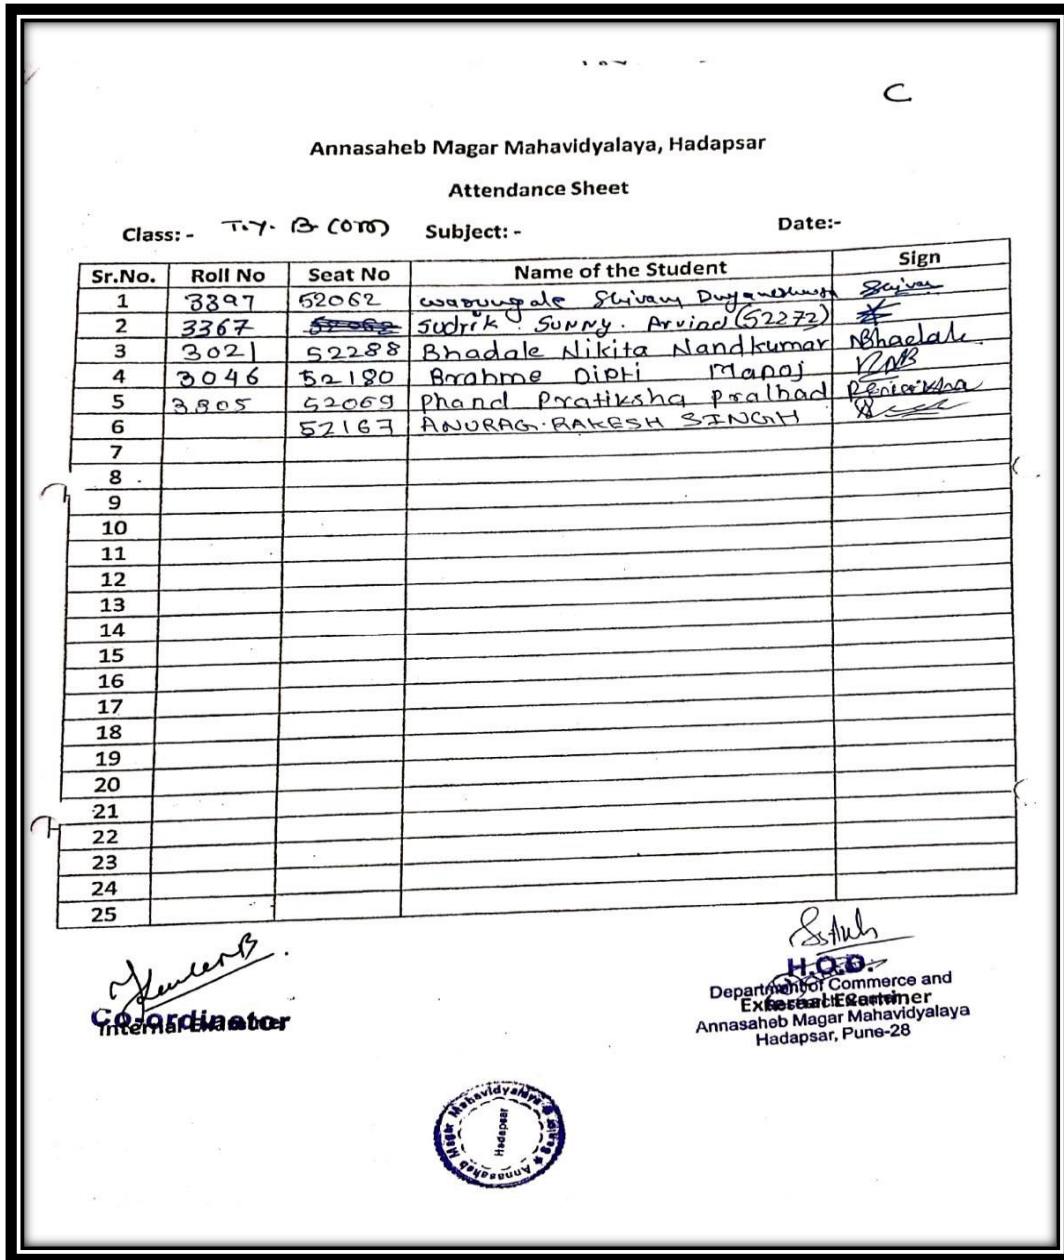 C
Annasaheb Magar Mahavidyalaya, Hadapsar
Attendance Sheet
Class: - T.Y. B.Com Subject: - Date:-
Sr.No. Roll No Seat No Name of the Student Sign
1 3397 52062 Shivam
2 3367 Sudrik. SUNNY. Arvind (52272)
3 3021 52288 Bhadale Nikita Nandkumar NBhadale
4 3046 52180 Brahme Dipti Manoj
5 3305 52069 Phand Pratiksha Pralhad
6 52167 ANURAG. RAKESH SINGH
7
8
9
10
11
12
13
14
15
16
17
18
19
20
21
22
23
24
25
Co-ordinator
Internal Examiner
H.O.D.
Department of Commerce and
Research Centre
External Examiner
Annasaheb Magar Mahavidyalaya
Hadapsar, Pune-28
Annasaheb Magar Mahavidyalaya
Hadapsar